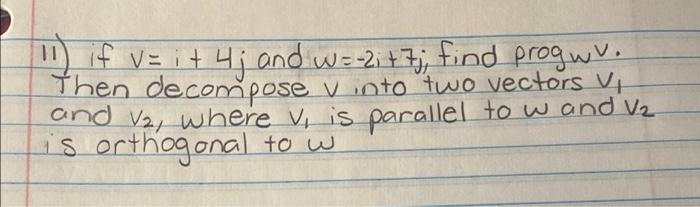 11) if v = i + 4j and w = -2i + 7j, find progwv.
Then decompose v into two vectors v1
and v2, where v1 is parallel to w and v2
is orthogonal to w